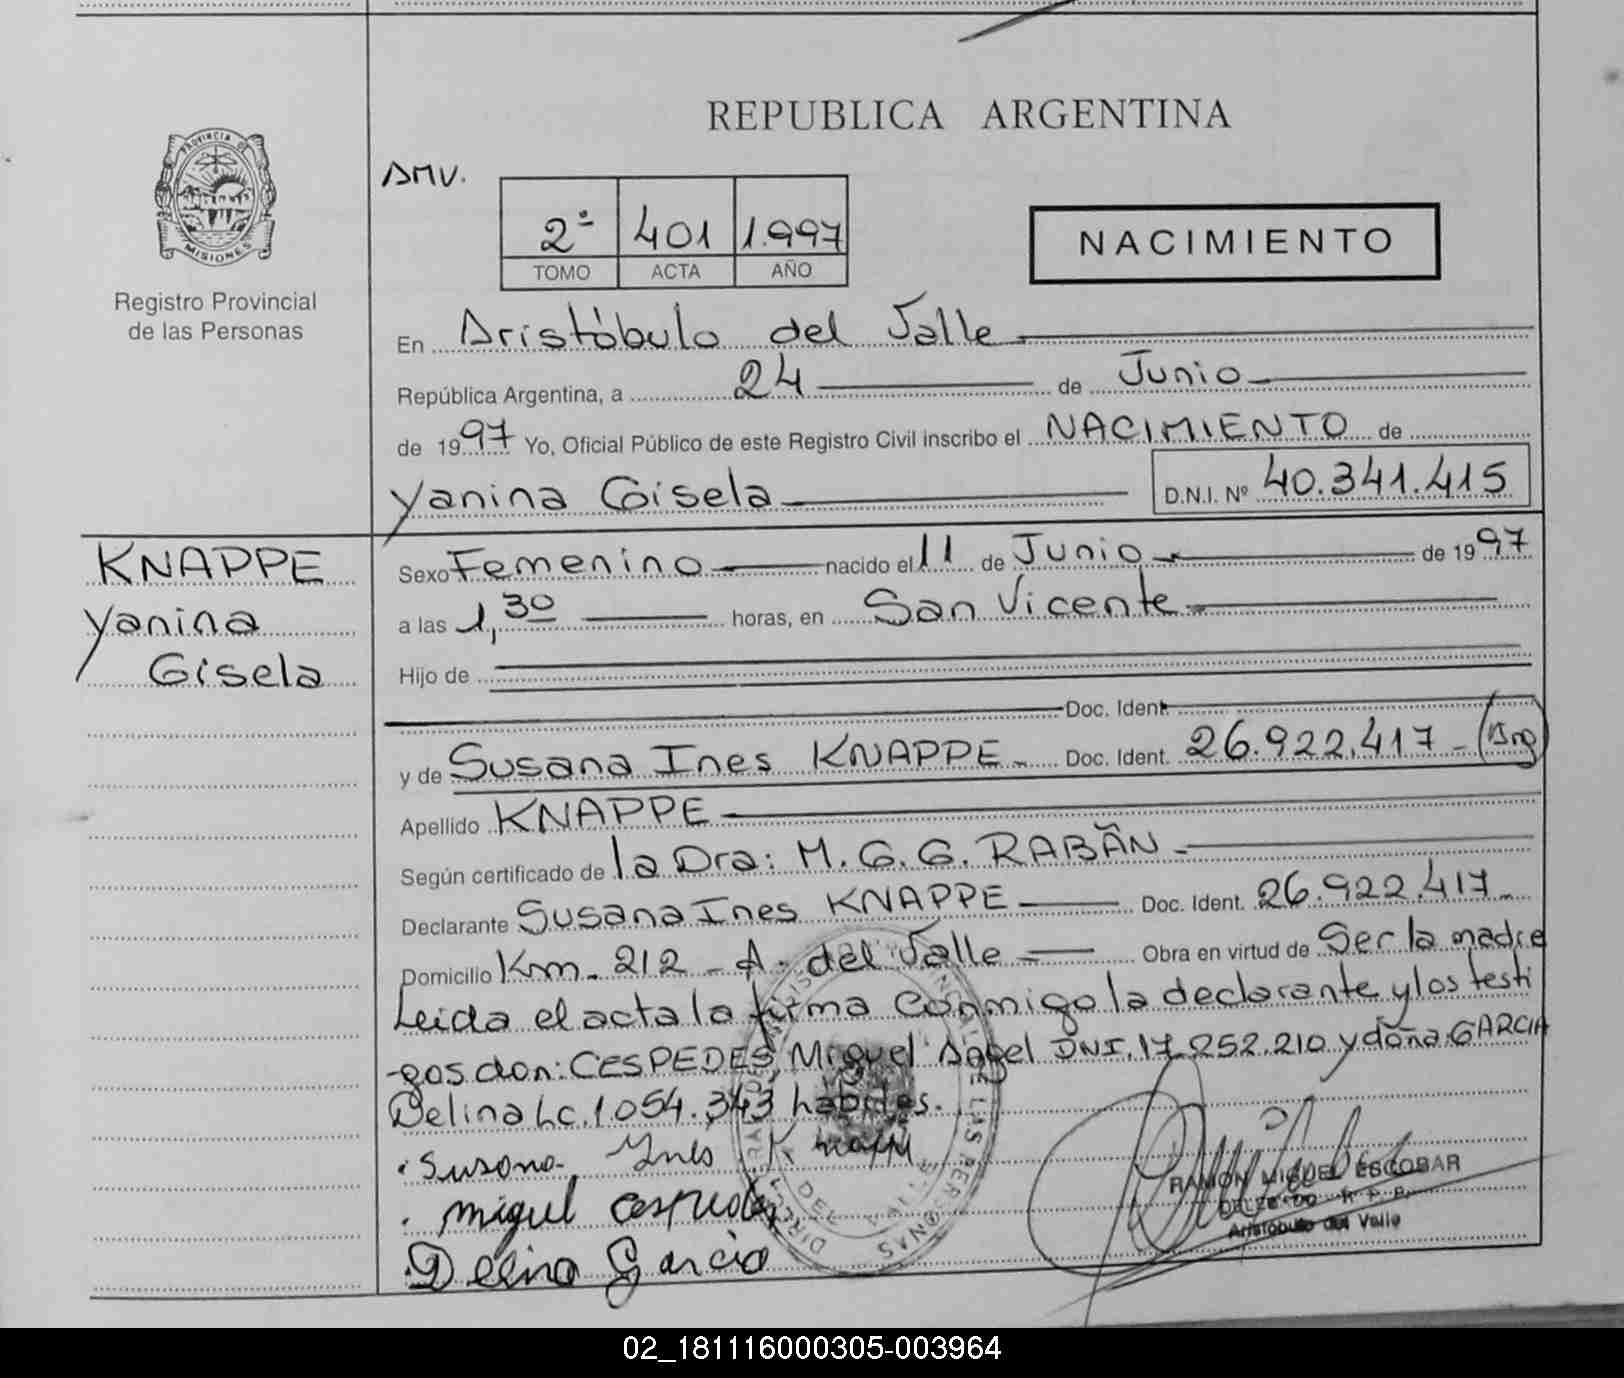 REPUBLICA ARGENTINA
PROVINCIA DE
MISIONES
Registro Provincial
de las Personas
AMV.
2º 401 1.997
TOMO ACTA AÑO
NACIMIENTO
En Aristóbulo del Valle
República Argentina, a 24 de Junio
de 1997 Yo, Oficial Público de este Registro Civil inscribo el NACIMIENTO de
Yanina Gisela D.N.I. Nº 40.341.415
KNAPPE
Yanina
Gisela
Sexo Femenino nacido el 11 de Junio de 1997
a las 1,30 horas, en San Vicente
Hijo de
Doc. Ident.
y de Susana Ines KNAPPE Doc. Ident. 26.922.417 - (Arg)
Apellido KNAPPE
Según certificado de la Dra: M. G. G. RABÄN
Declarante Susana Ines KNAPPE Doc. Ident. 26.922.417
Domicilio Km. 212 - A. del Valle Obra en virtud de Ser la madre
Leida el acta la firma conmigo la declarante y los testi
-gos don: CESPEDES, Miguel Angel DNI. 17.252.210 y doña GARCIA
Delina Lc. 1.054.343 habiles.
Susana Ines Knappe
miguel cespedes
Delina Garcia
RAMON MIGUEL ESCOBAR
DELEGADO R. P. P.
Aristóbulo del Valle
02_181116000305-003964